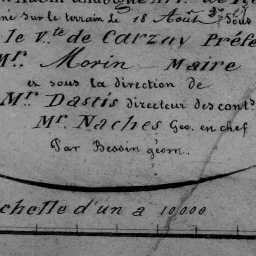 sur le terrain le 18 Août
sous
le V.te de Carzay Préfe
Mr. Morin Maire
et sous la direction de
Mr. Dastis directeur des cont.s
Mr. Naches Geo. en chef
Par Bessin géom.
chelle d'un a 10000